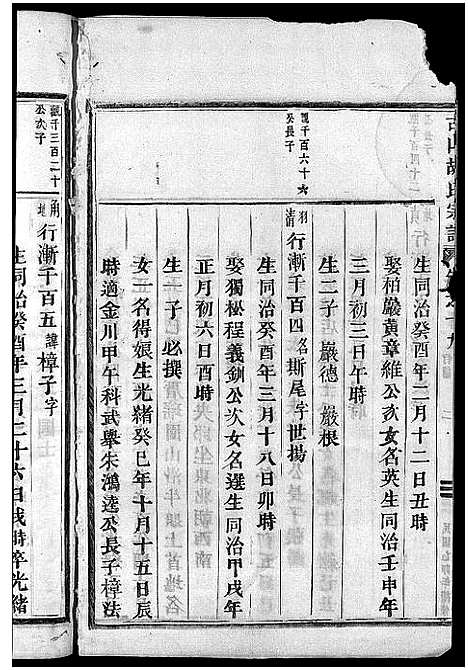 古山胡氏宗譜
生同治癸酉年二月十二日丑時
娶柏巖黃章維公次女名英生同治壬申年
三月初三日午時
生二子 巖德 巖根
觀千百六十六
公長子
清 行漸千百四名斯尾字世揚
生同治癸酉年三月十八日卯時
娶獨松程義釧公次女名選生同治甲戌年
正月初六日酉時
生一子 必撰
女一名得娘生光緒癸巳年十月十五日辰
時適金川甲午科武舉朱鴻逵公長子樟法
觀千三百二十
公次子
角
地 行漸千百五諱樟子字
生同治癸酉年三月二十六日戌時卒光緒